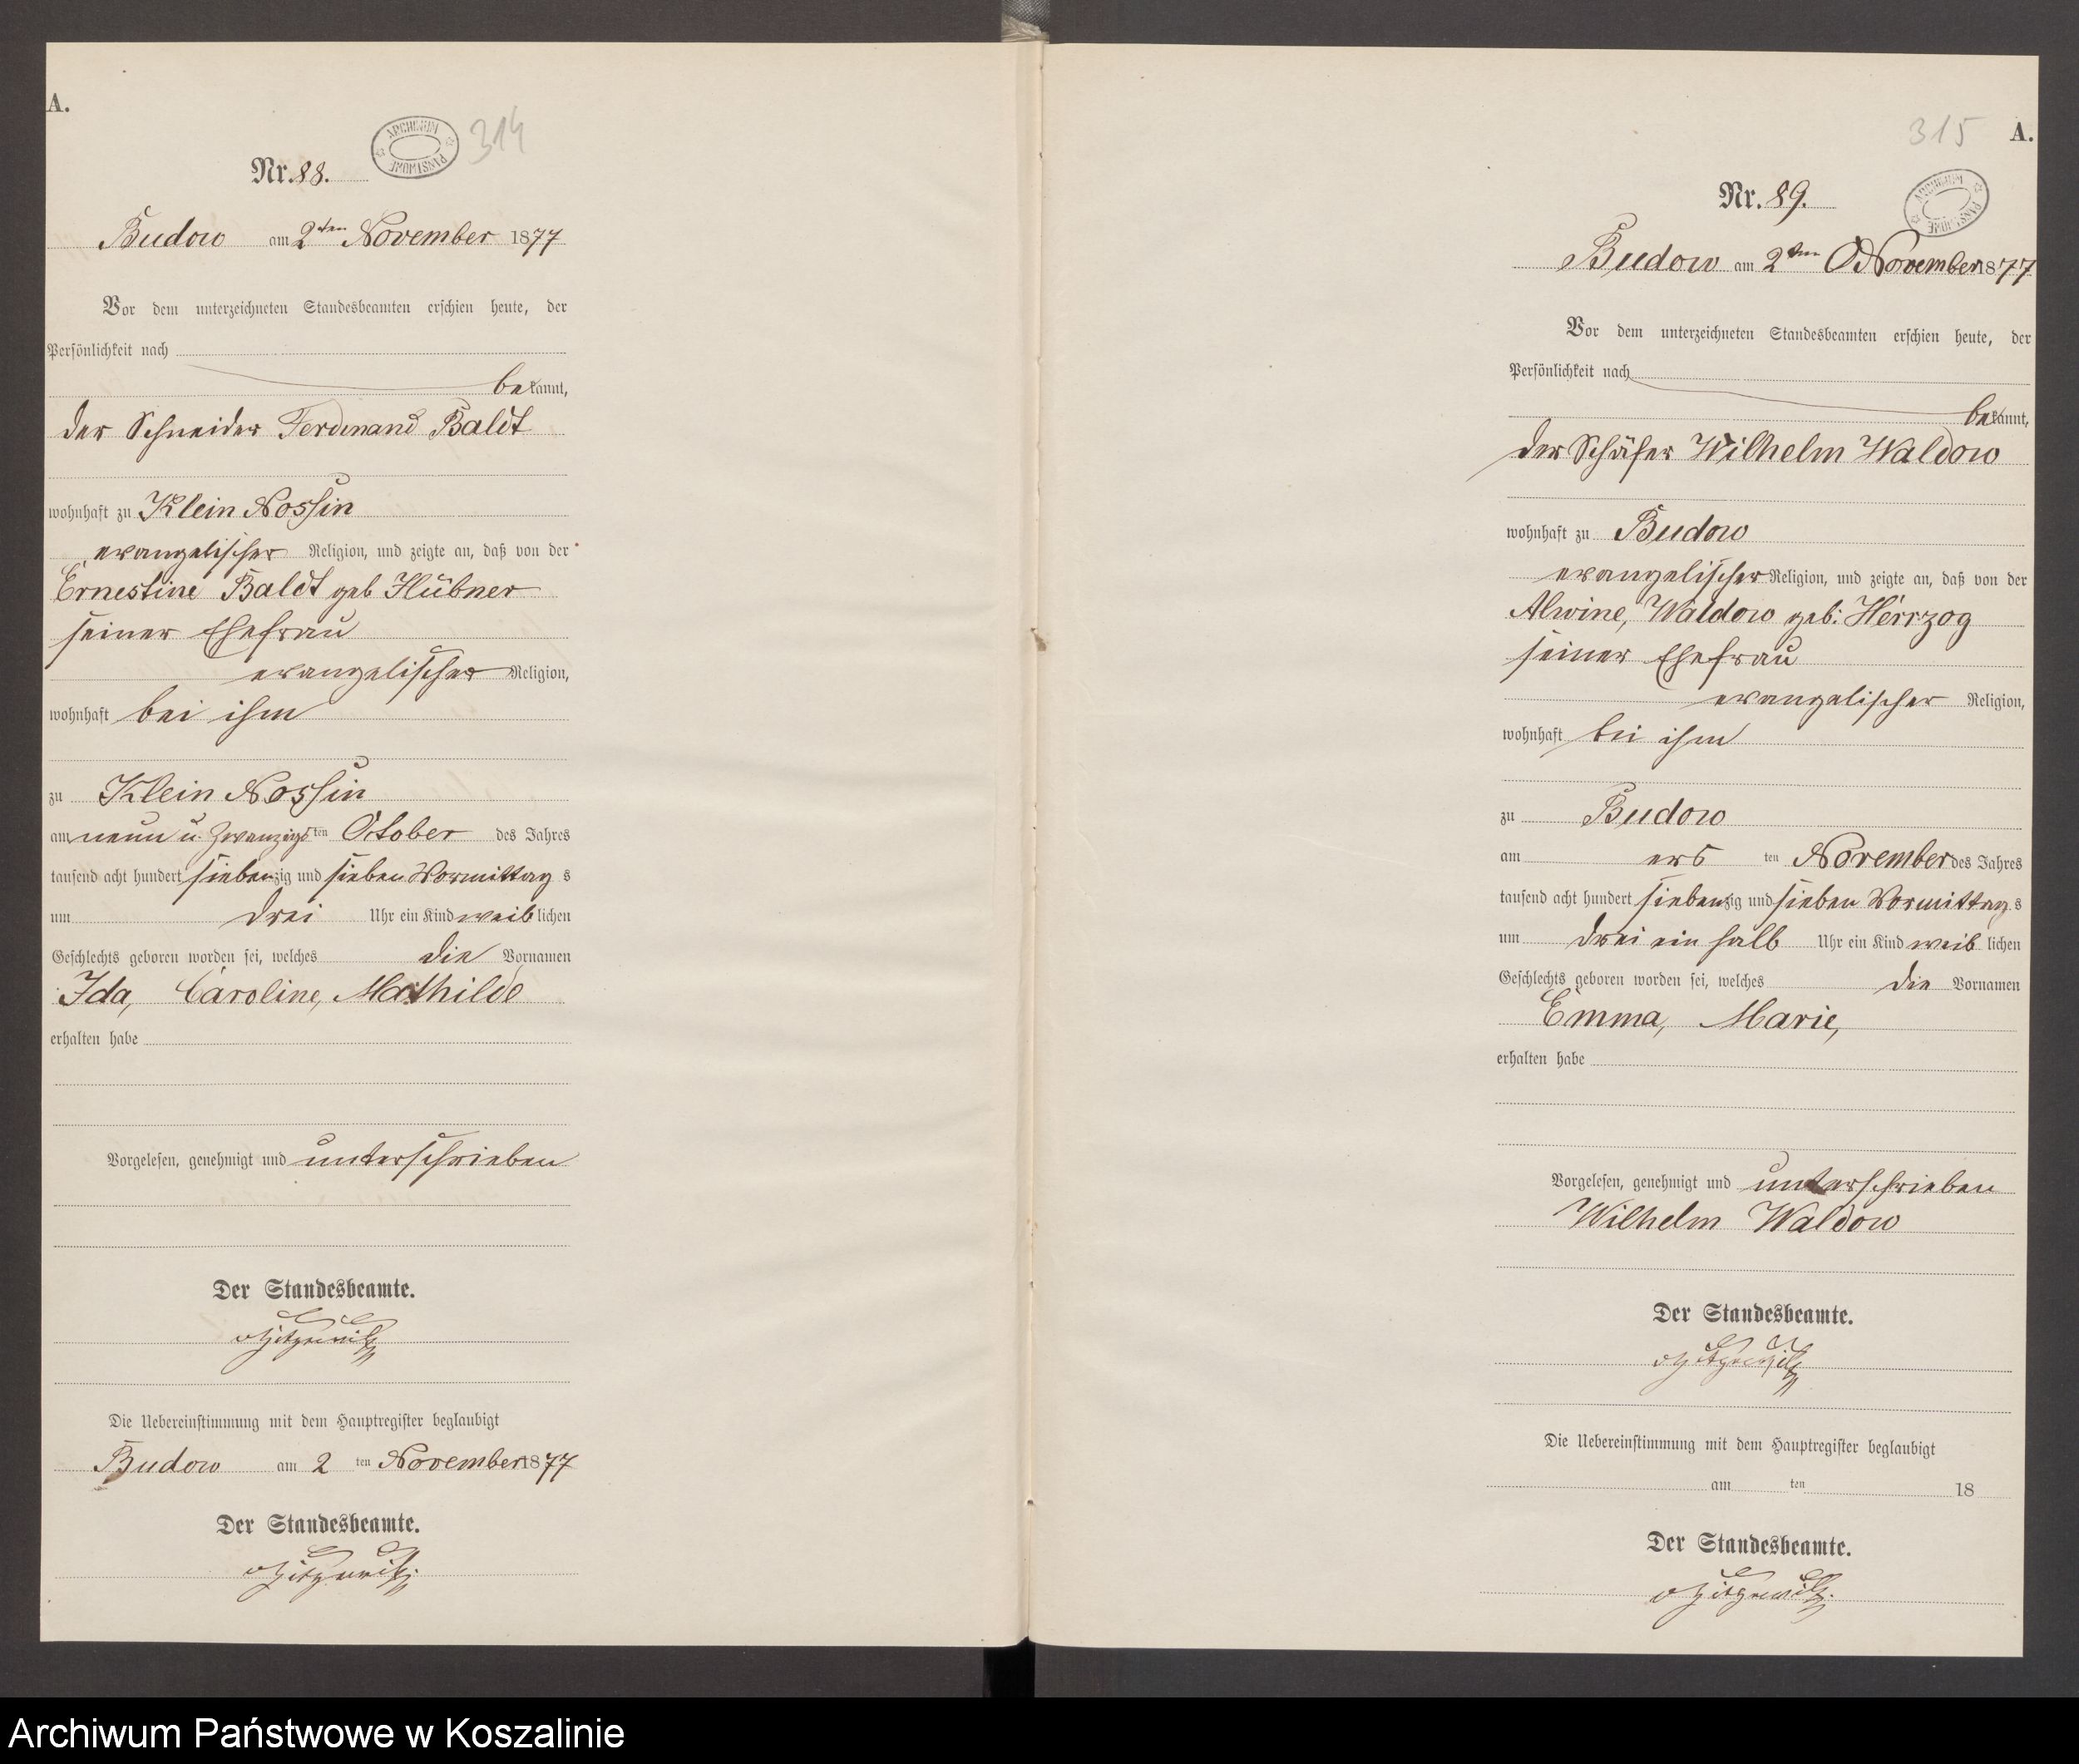 A.
ARCHIWUM PAŃSTWOWE
314
Nr. 88.
Budow am 2ten November 1877
Vor dem unterzeichneten Standesbeamten erschien heute, der
Persönlichkeit nach
bekannt,
der Schneider Ferdinand Baldt
wohnhaft zu Klein Nossin
evangelischer Religion, und zeigte an, daß von der
Ernestine Baldt geb Hübner
seiner Ehefrau
evangelischer Religion,
wohnhaft bei ihm
zu Klein Nossin
am neun u. zwanzigsten October des Jahres
tausend acht hundert siebenzig und sieben Vormittags
um drei Uhr ein Kind weiblichen
Geschlechts geboren worden sei, welches die Vornamen
Ida, Caroline, Mathilde
erhalten habe
Vorgelesen, genehmigt und unterschrieben
Der Standesbeamte.
Die Uebereinstimmung mit dem Hauptregister beglaubigt
Budow am 2 ten November 1877
Der Standesbeamte.
315
A.
ARCHIWUM PAŃSTWOWE
Nr. 89.
Budow am 2ten November 1877
Vor dem unterzeichneten Standesbeamten erschien heute, der
Persönlichkeit nach
bekannt,
der Schäfer Wilhelm Waldow
wohnhaft zu Budow
evangelischer Religion, und zeigte an, daß von der
Alwine, Waldow geb: Herrzog
seiner Ehefrau
evangelischer Religion,
wohnhaft bei ihm
zu Budow
am ers ten November des Jahres
tausend acht hundert siebenzig und sieben Vormittags
um drei ein halb Uhr ein Kind weiblichen
Geschlechts geboren worden sei, welches die Vornamen
Emma, Marie,
erhalten habe
Vorgelesen, genehmigt und unterschrieben
Wilhelm Waldow
Der Standesbeamte.
Die Uebereinstimmung mit dem Hauptregister beglaubigt
am ten 18
Der Standesbeamte.
Archiwum Państwowe w Koszalinie